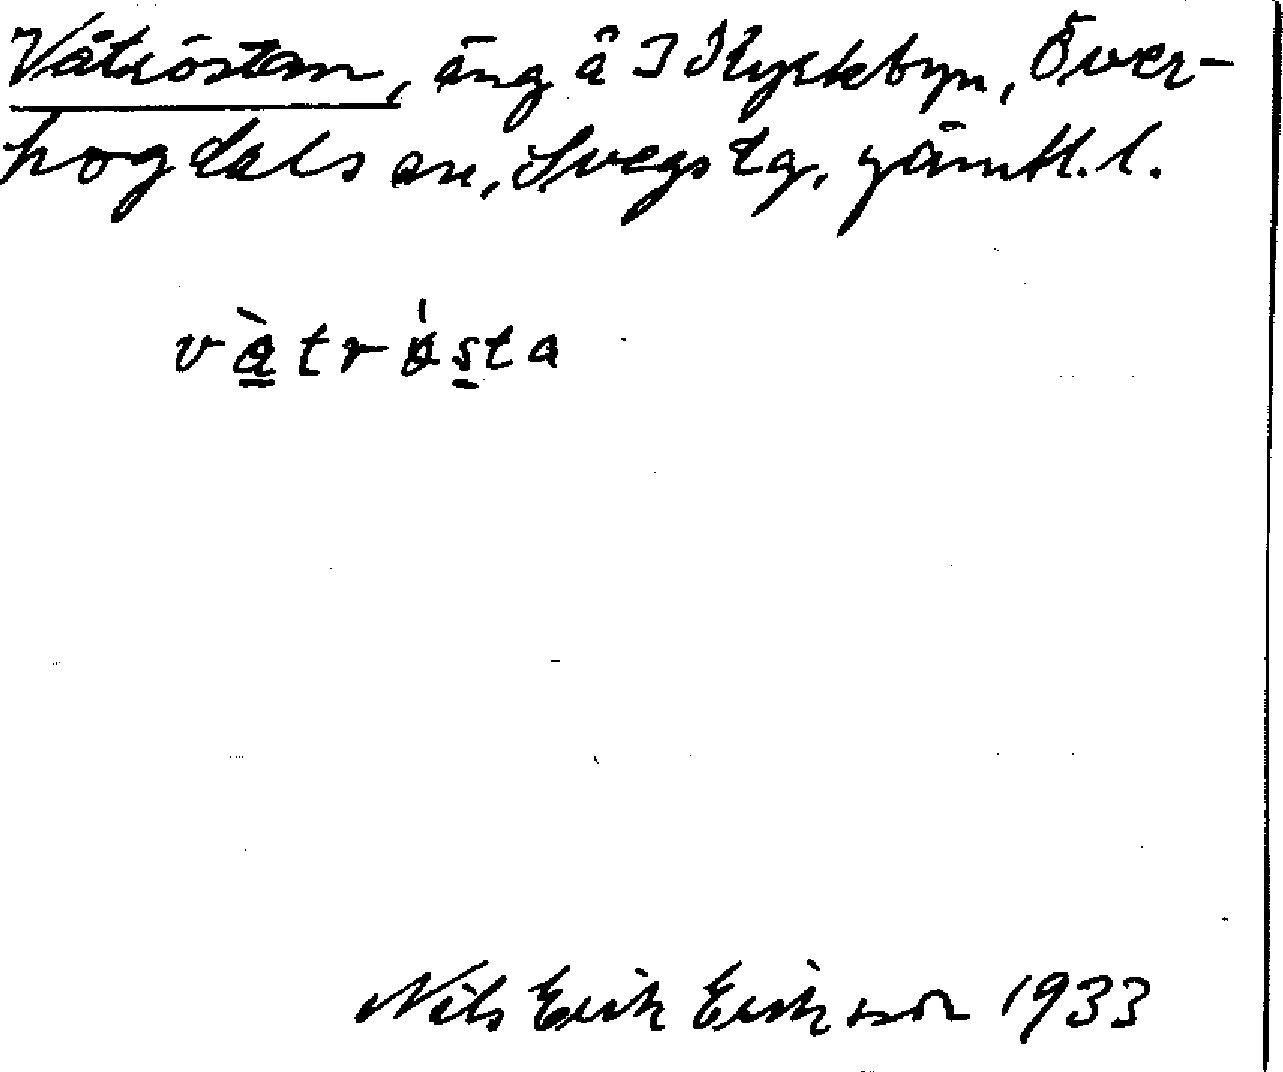 Våtröstan, äng å I Kyrkbyn, Över-
hogdals sn, Svegs tg, Jämtl. l.
vàtrösta
Nils Erik Eriksson 1933